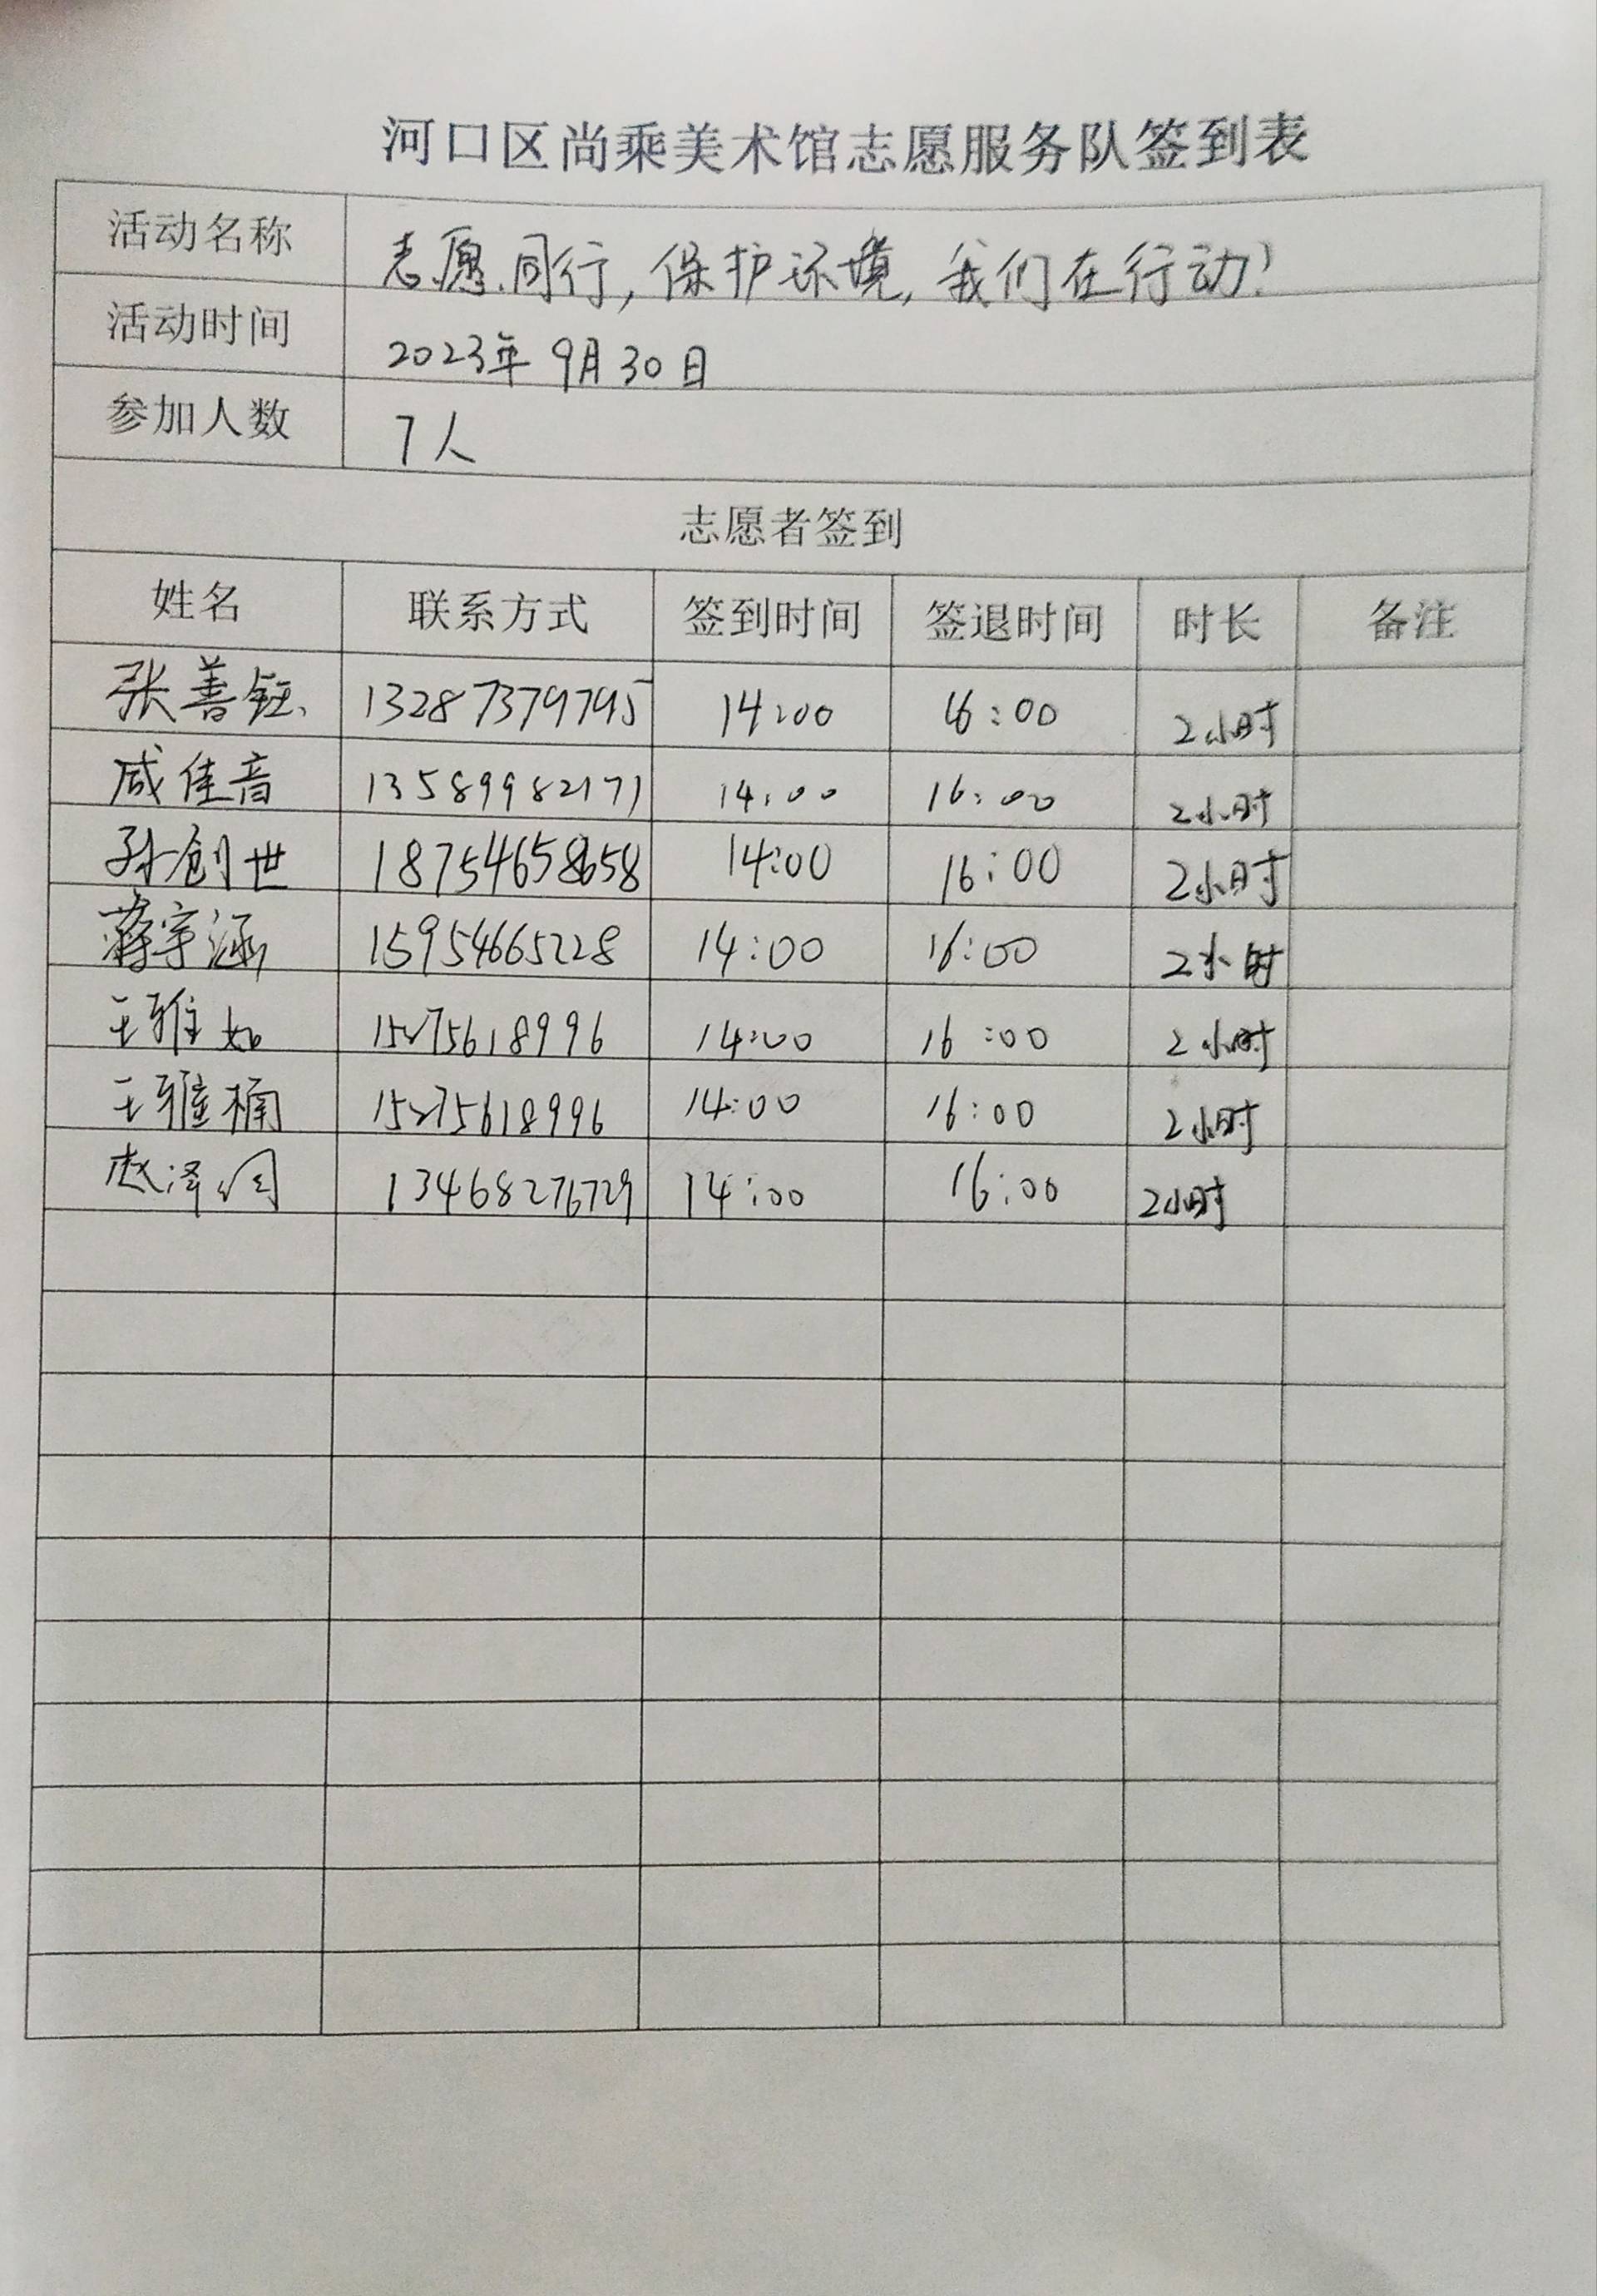 河口区尚乘美术馆志愿服务队签到表
活动名称 志愿同行,保护环境,我们在行动!
活动时间 2023年9月30日
参加人数 7人
志愿者签到
姓名 联系方式 签到时间 签退时间 时长 备注
张善钰 13287379795 14:00 16:00 2小时
咸佳音 13589982171 14:00 16:00 2小时
孙创世 18754658658 14:00 16:00 2小时
蒋宇涵 15954665228 14:00 16:00 2小时
王雅如 15275618996 14:00 16:00 2小时
王雅楠 15275618996 14:00 16:00 2小时
赵泽 13468276729 14:00 16:00 2小时